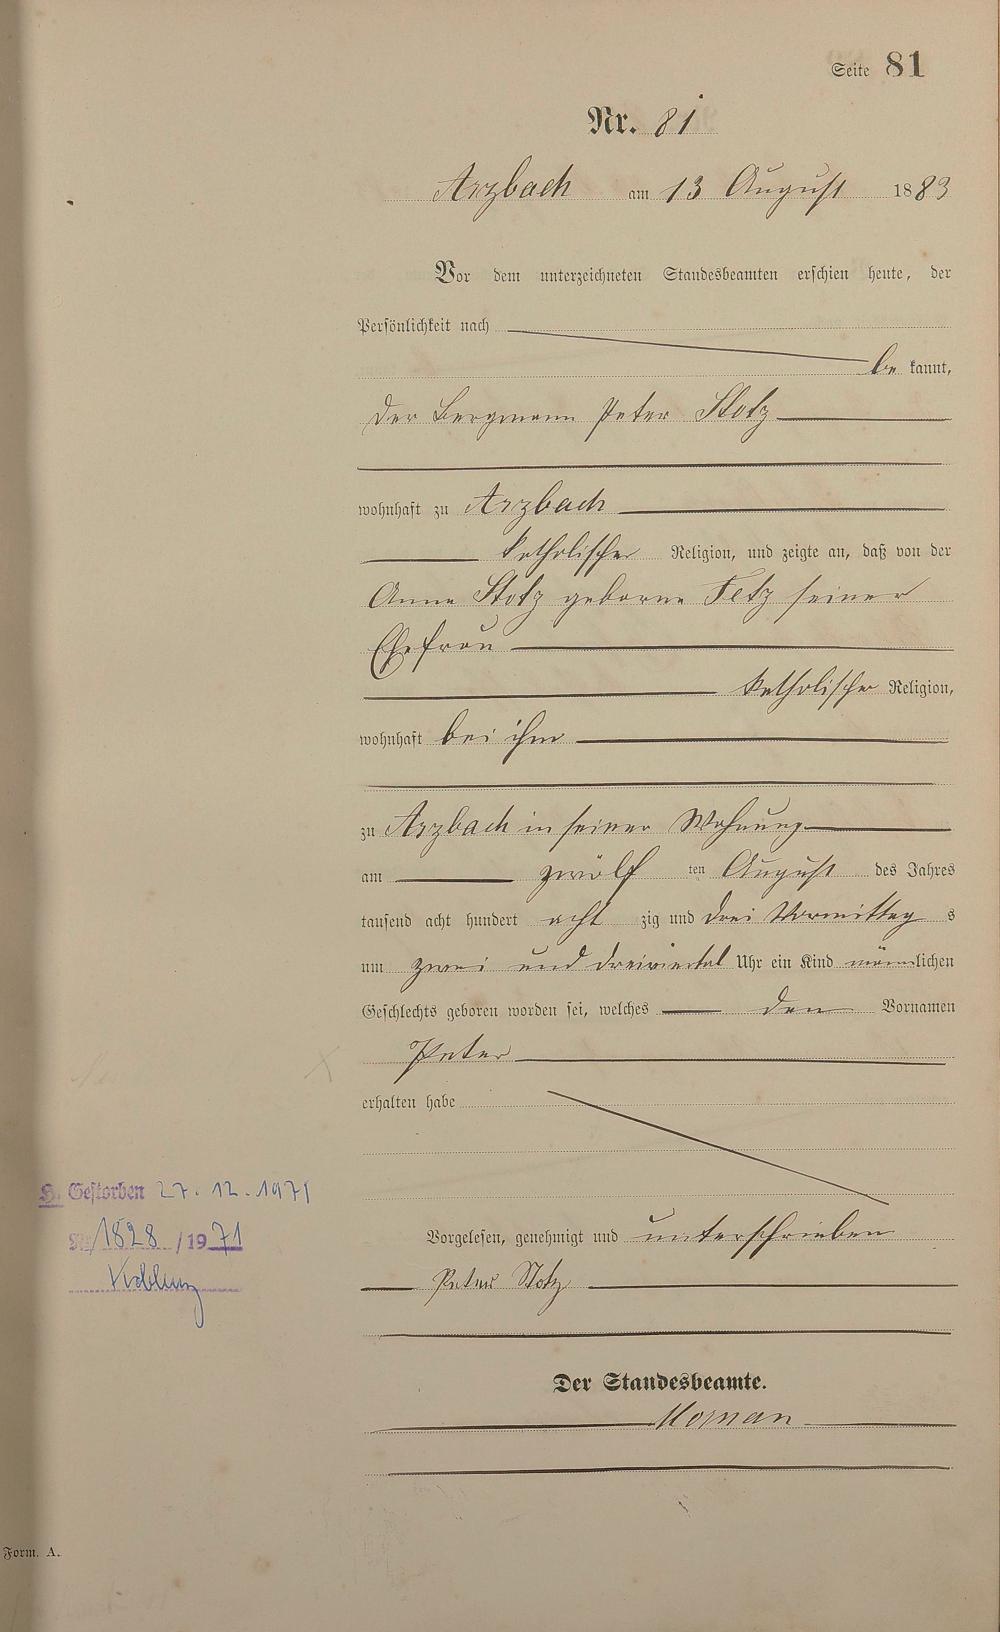 Seite 81
Nr. 81
Arzbach am 13 August 1883
Vor dem unterzeichneten Standesbeamten erschien heute, der
Persönlichkeit nach
be kannt,
der Bergmann Peter Stotz
wohnhaft zu Arzbach
katholischer Religion, und zeigte an, daß von der
Anna Stotz geborne Fetz seiner
Ehefrau
katholischer Religion,
wohnhaft bei ihm
zu Arzbach in seiner Wohnung
am zwölf ten August des Jahres
tausend acht hundert acht zig und drei Vormittag s
um zwei und dreiviertel Uhr ein Kind männlichen
Geschlechts geboren worden sei, welches den Vornamen
Peter
erhalten habe
H. Gestorben 27.12.1971
Nr. 1828 / 1971
Koblenz
Vorgelesen, genehmigt und unterschrieben
Peter Stotz
Der Standesbeamte.
Form. A.